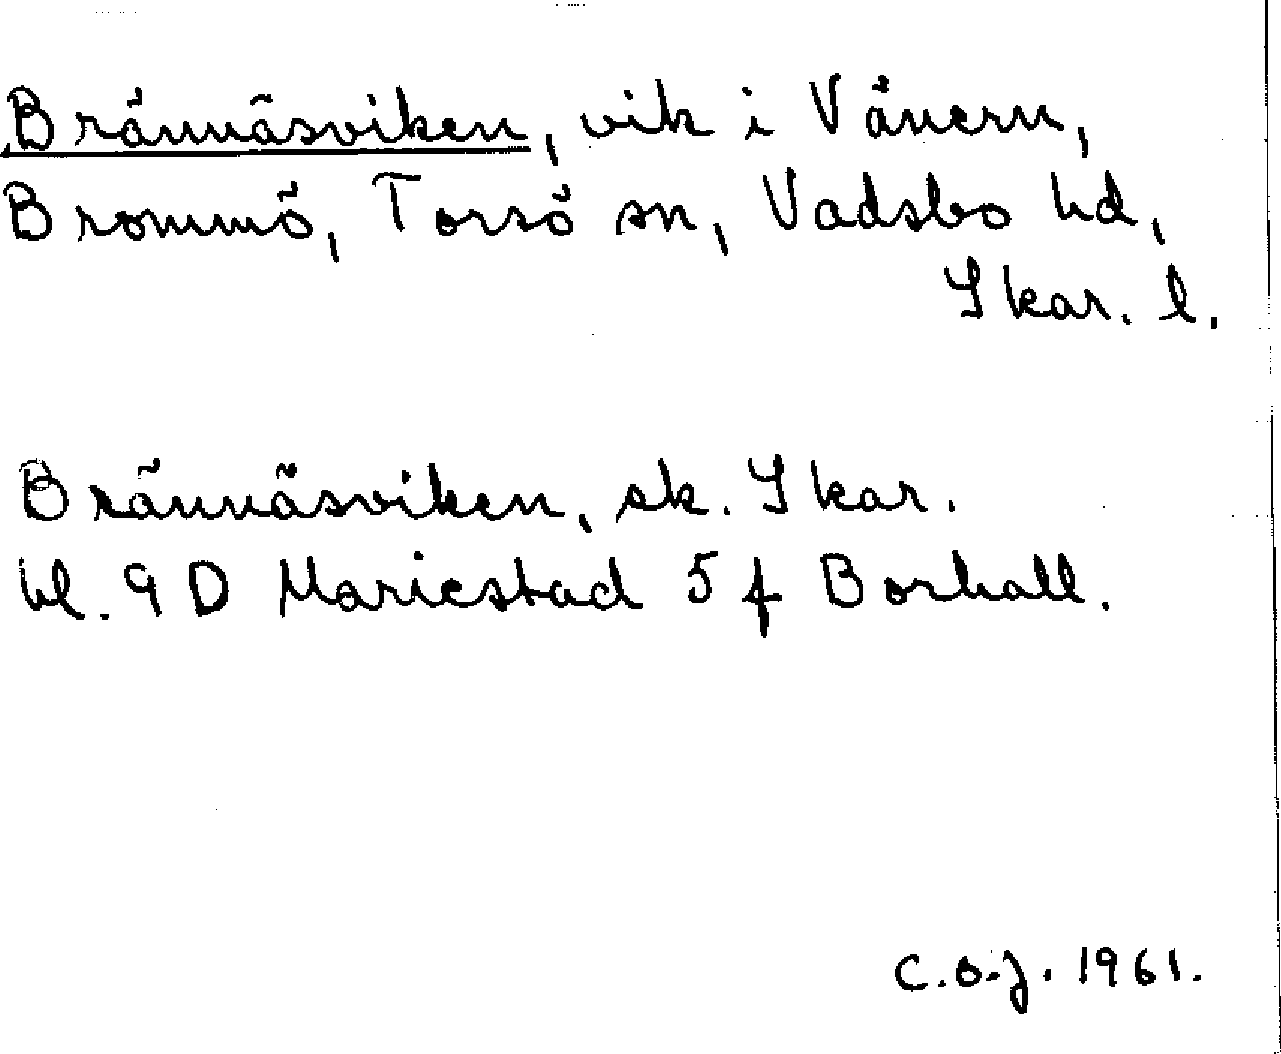 Brännäsviken, vik i Vänern,
Brommö, Torsö sn, Vadsbo hd,
Skar. l.
Brännäsviken, ek. Skar.
bl. 9 D Mariestad 5 f Borhall.
C.O.J. 1961.